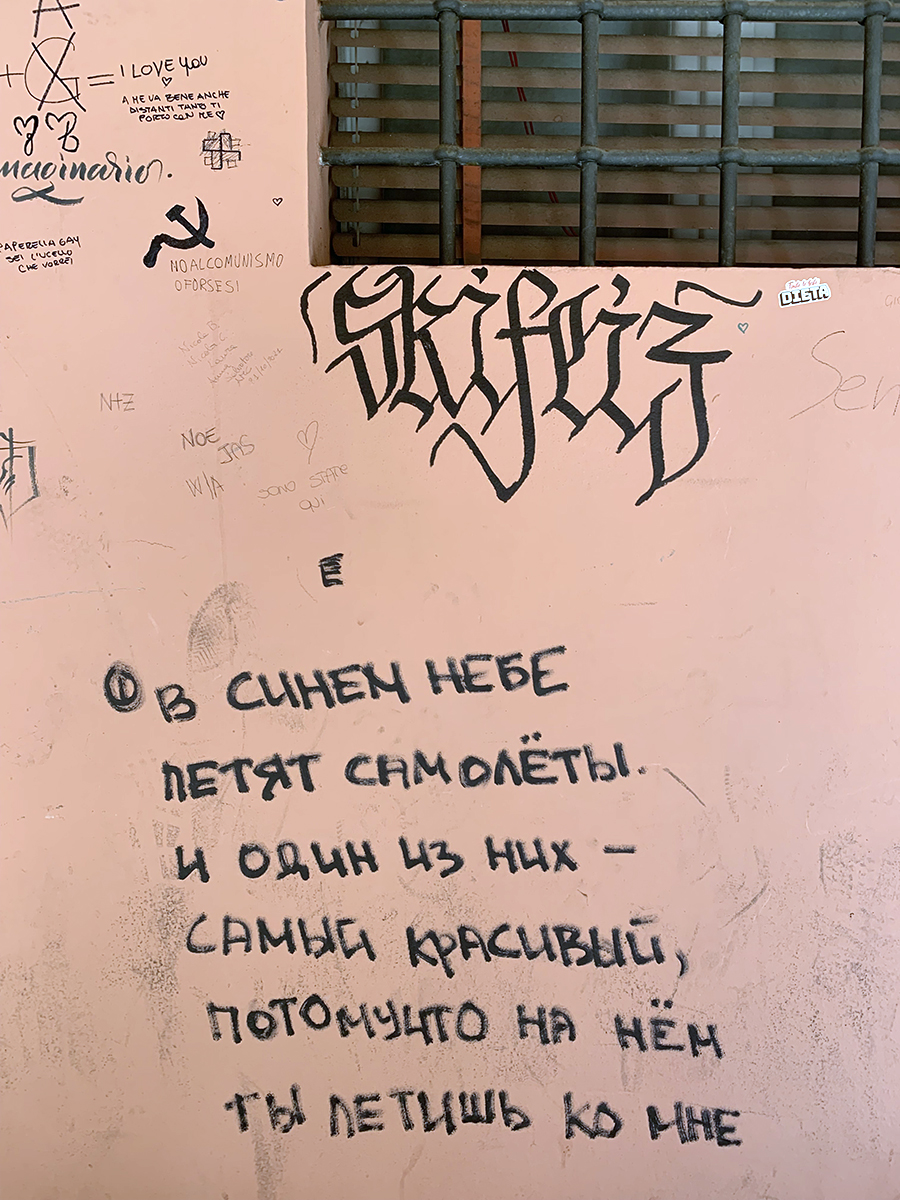 A
+ G = I LOVE YOU
A ME VA BENE ANCHE
DISTANTI TANTO TI
PORTO CON ME
PAPERELLA GAY
SEI L'UCELLO
CHE VORREI
NO AL COMUNISMO
O FORSE SI
DIETA
N+Z
NOE
JAS
W/A
SONO STATE
QUI
E
В СИНЕМ НЕБЕ
ЛЕТЯТ САМОЛЁТЫ.
И ОДИН ИЗ НИХ –
САМЫЙ КРАСИВЫЙ,
ПОТОМУЧТО НА НЁМ
ТЫ ЛЕТИШЬ КО МНЕ